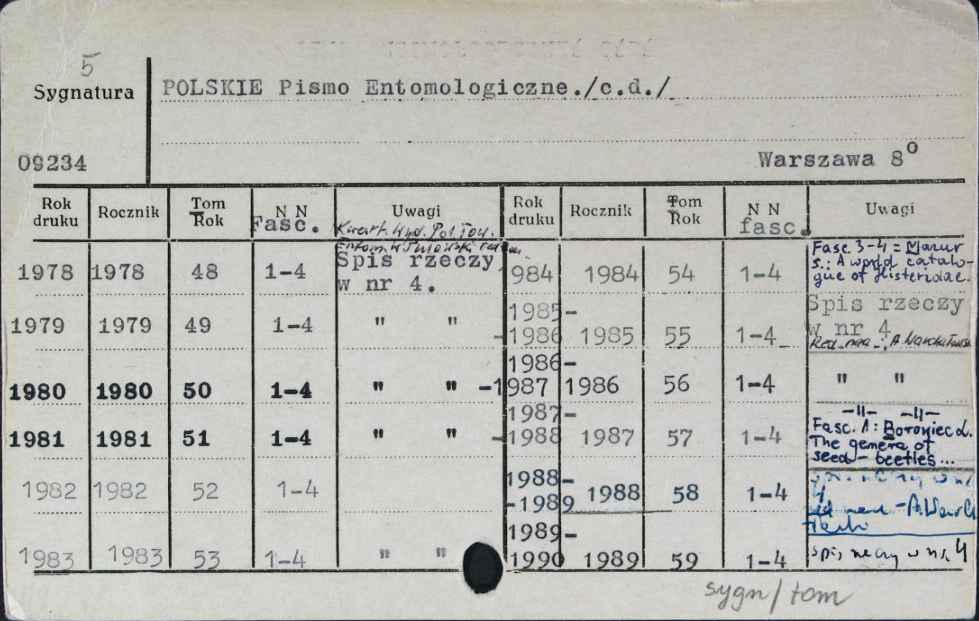 5
Sygnatura POLSKIE Pismo Entomologiczne./c.d./
09234 Warszawa 8º
Rok druku Rocznik Tom Rok N N Fasc. Uwagi Rok druku Rocznik Tom Rok N N fasc. Uwagi
Kwart. Wyd. Pol. Tow.
Entom.
1978 1978 48 1-4 Spis rzeczy w nr 4. 984 1984 54 1-4 Fasc. 3-4 = Mazur S.: A world catalogue of Histeridae.
1979 1979 49 1-4 " " 1985-1986 1985 55 1-4 Spis rzeczy w nr 4
1980 1980 50 1-4 " " 1986-1987 1986 56 1-4 " "
1981 1981 51 1-4 " " 1987-1988 1987 57 1-4 -11- -11- Fasc. 1: Borowiec L. The genera of seed-beetles...
1982 1982 52 1-4 1988-1989 1988 58 1-4
1983 1983 53 1-4 " " 1989-1990 1989 59 1-4 spis rzeczy w nr. 4
sygn/tom